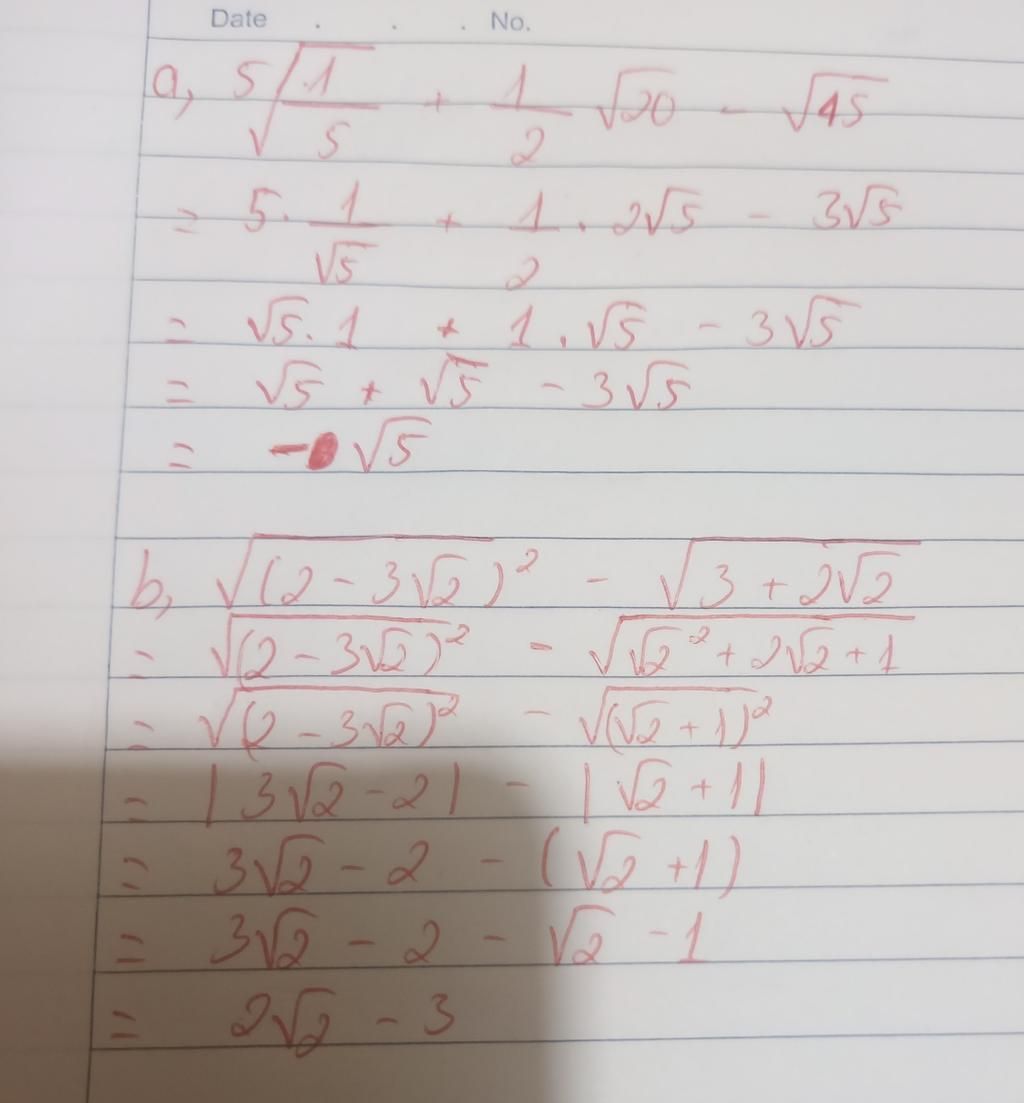 Date . . . No.
a, 5√(1/5) + 1/2 √20 - √45
= 5. 1/√5 + 1/2 . 2√5 - 3√5
= √5. 1 + 1. √5 - 3√5
= √5 + √5 - 3√5
= - √5
b, √(2 - 3√2)² - √3 + 2√2
= √(2 - 3√2)² - √√2² + 2√2 + 1
= √(2 - 3√2)² - √(√2 + 1)²
= |3√2 - 2| - |√2 + 1|
= 3√2 - 2 - (√2 + 1)
= 3√2 - 2 - √2 - 1
= 2√2 - 3